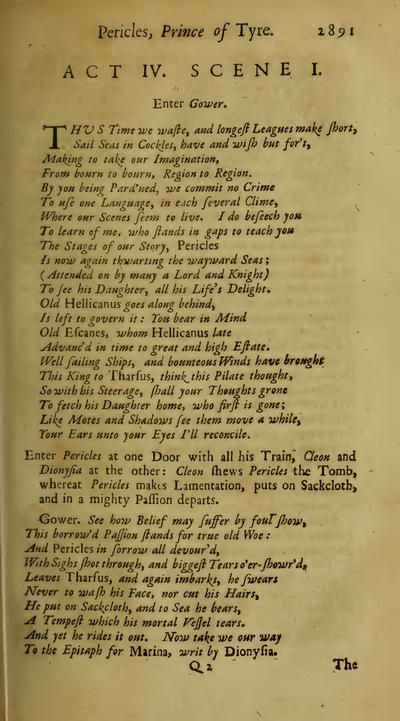 Pericles, Prince of Tyre. 2891
ACT IV. SCENE I.
Enter Gower.
THUS Time we waſte, and longeſt Leagues make ſhort,
Sail Seas in Cockles, have and wiſh but for't,
Making to take our Imagination,
From bourn to bourn, Region to Region.
By you being Pard'ned, we commit no Crime
To uſe one Language, in each ſeveral Clime,
Where our Scenes ſeem to live. I do beſeech you
To learn of me, who ſtands in gaps to teach you
The Stages of our Story, Pericles
Is now again thwarting the wayward Seas;
(Attended on by many a Lord and Knight)
To ſee his Daughter, all his Life's Delight.
Old Hellicanus goes along behind,
Is left to govern it: You bear in Mind
Old Eſcanes, whom Hellicanus late
Advanc'd in time to great and high Eſtate.
Well ſailing Ships, and bounteous Winds have brought
This King to Tharſus, think this Pilate thought,
So with his Steerage, ſhall your Thoughts grone
To fetch his Daughter home, who firſt is gone;
Like Motes and Shadows ſee them move a while,
Your Ears unto your Eyes I'll reconcile.
Enter Pericles at one Door with all his Train, Cleon and
Dionyſia at the other: Cleon ſhews Pericles the Tomb,
whereat Pericles makes Lamentation, puts on Sackcloth,
and in a mighty Paſſion departs.
Gower. See how Belief may ſuffer by foul ſhow,
This borrow'd Paſſion ſtands for true old Woe:
And Pericles in ſorrow all devour'd,
With Sighs ſhot through, and biggeſt Tears o'er-ſhowr'd,
Leaves Tharſus, and again imbarks, he ſwears
Never to waſh his Face, nor cut his Hairs,
He put on Sackcloth, and to Sea he bears,
A Tempeſt which his mortal Veſſel tears.
And yet he rides it out. Now take we our way
To the Epitaph for Marina, writ by Dionyſia.
Q 2 The